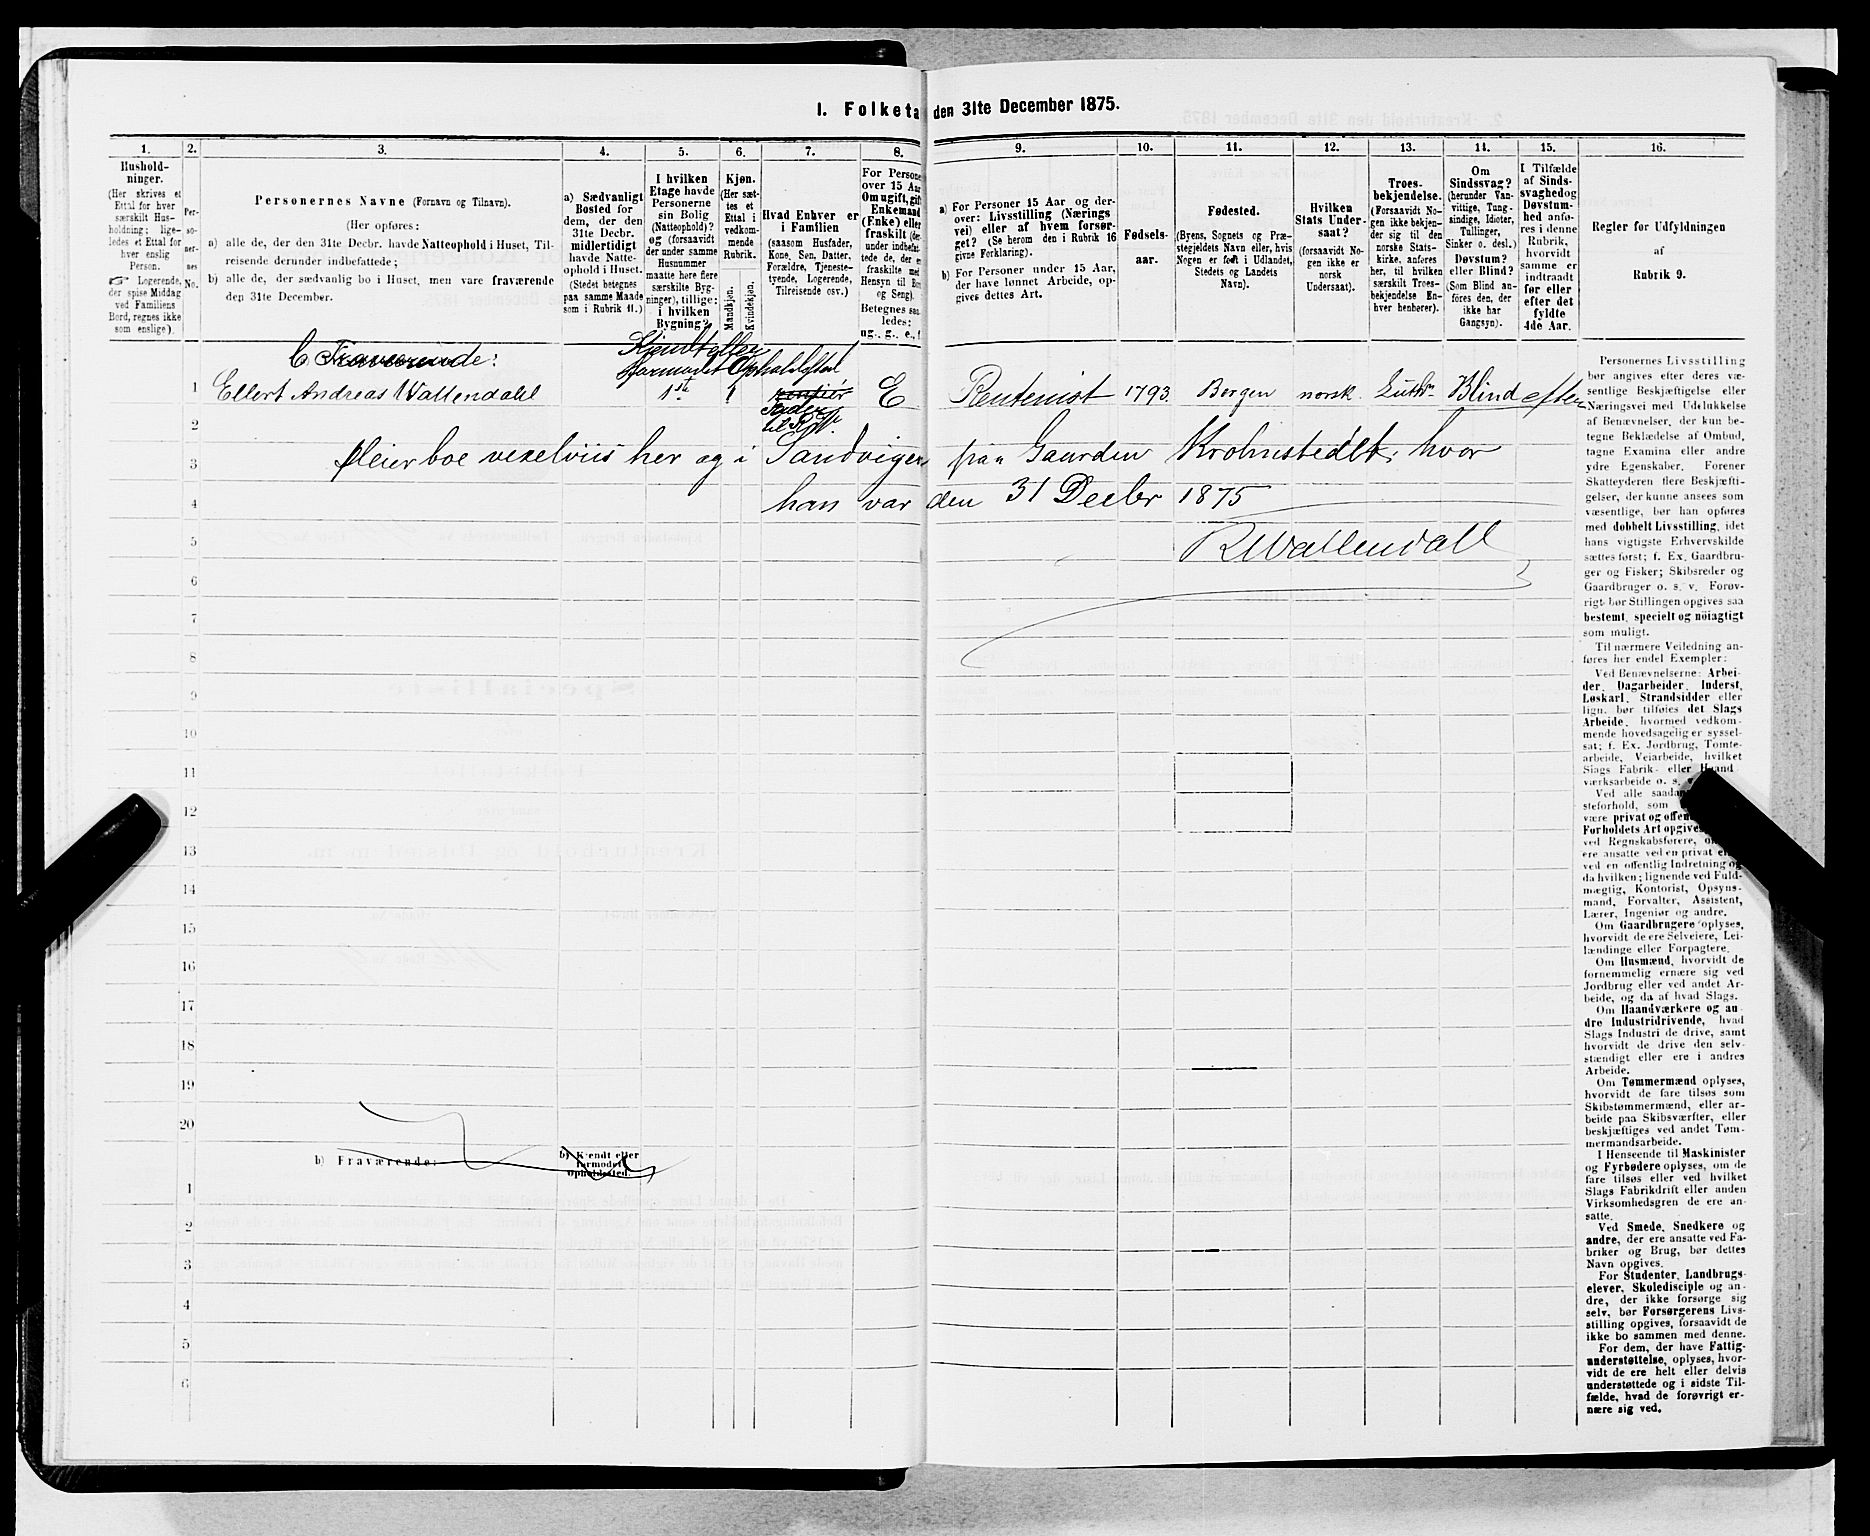 I. Folketa den 31te December 1875.
1. 2. 3. 4. 5. 6. 7. 8. 9. 10. 11. 12. 13. 14. 15. 16.
Hushold-
ninger.
(Her skrives et
Ettal for hver
særskilt Hus-
holdning; lige-
ledes et Ettal for
hver enslig
Person.
Logerende,
der spise Middag
ved Familiens
Bord, regnes ikke
som enslige).
Per-
so-
ner-
nes
No.
Personernes Navne (Fornavn og Tilnavn).
(Her opføres:
a) alle de, der den 31te Decbr. havde Natteophold i Huset, Til-
reisende derunder indbefattede;
b) alle de, der sædvanlig bo i Huset, men vare fraværende
den 31te December.
a) Sædvanligt
Bosted for
dem, der den
31te Decbr.
midlertidigt
havde Natte-
ophold i Huset.
(Stedet betegnes
paa samme Maade
som i Rubrik 11.)
I hvilken
Etage havde
Personerne
sin Bolig
(Natteophold)?
og (forsaavidt
der under samme
Husnummer
maatte høre flere
særskilte Byg-
ninger), tillige:
i hvilken
Bygning?
Kjøn.
(Her sæt-
tes et
Ettal i
vedkom-
mende
Rubrik.
Mandkjøn.
Kvindekjøn.
Hvad Enhver er
i Familien
(saasom Husfader,
Kone, Søn, Datter,
Forældre, Tjeneste-
tyende, Logerende,
Tilreisende osv.)
For Persone
over 15 Aar
Om ugift, gift
Enkemand
(Enke) eller
fraskilt (der-
under indbefat-
tede de, der er
fraskilte med
Hensyn til Bor
og Seng).
Betegnes saa-
ledes:
ug., g., e., f.
a) For Personer 15 Aar og der-
over: Livsstilling (Nærings
vei) eller af hvem forsør-
get? (Se herom den i Rubrik 16
givne Forklaring).
b) For Personer under 15 Aar,
der have lønnet Arbeide, op-
gives dettes Art.
Fødsels-
aar.
Fødested.
(Byens, Sognets og Præ-
stegjeldets Navn eller, hvis
Nogen er født i Udlandet,
Stedets og Landets
Navn).
Hvilken
Stats Under-
saat?
(forsaavidt No-
gen ikke er
norsk
Undersaat).
Troes-
bekjendelse.
(Forsaavidt No-
gen ikke bekjen-
der sig til den
norske Stats-
kirke, anføres
her, til hvilken
særskilt Troes-
bekjendelse En-
hver henhører).
Om
Sindssvag?
(herunder Van-
vittige, Tung-
sindige, Idioter,
Tullinger,
Sinker o. desl.)
Døvstum?
eller Blind?
(Som Blind an-
føres den, der
ikke har
Gangsyn).
I Tilfælde
af Sinds-
svaghedog
Døvstum-
hed anfø-
res i denne
Rubrik,
hvorvidt
samme er
indtraadt
før eller
efter det
fyldte
4de Aar.
Regler for Udfyldningen
af
Rubrik 9.
C Fraværende: Kjendt eller
formodet Opholdssted
1 Ellert Andreas Wallendahl 1st 1 rentier E Rentenist 1793. Bergen norsk. Luth. Blind efter
Fader
2
3 pleier boe vexelviis her og i Sandvigen paa Gaarden Krohnstedet, hvor
4 han var den 31 Decbr 1875
5 R Wallendall
6
7
8
9
10
11
12
13
14
15
16
17
18
19
20
b) Fraværende: b) Kjendt eller
formodet
Opholdssted.
1
2
3
4
5
6
Personernes Livsstilling
bør angives efter deres væ-
sentlige Beskjæftigelse eller
Næringsvei med Udelukkelse
af Benævnelser, der kun be-
tegne Beklædelse af Ombud,
tagne Examina eller andre
ydre Egenskaber. Forener
Skatteyderen flere Beskjæfti-
gelser, der kunne ansees som
væsentlige, bør han opføres
med dobbelt Livsstilling, idet
hans vigtigste Erhvervskilde
sættes først; f. Ex. Gaardbru-
ger og Fisker; Skibsreder og
Gaardbruger o. s. v. Forøv-
rigt bør Stillingen opgives saa
bestemt, specielt og nöiagtigt
som muligt.
Til nærmere Veiledning an-
føres her endel Exempler:
Ved Benævnelserne: Arbei-
der, Dagarbeider, Inderst,
Løskarl, Strandsidder eller
lign. bør tilføies det Slags
Arbeide, hvormed vedkom-
mende hovedsagelig er syssel-
sat; f. Ex. Jordbrug, Tomte-
arbeide, Veiarbeide, hvilket
Slags Fabrik- eller Haand-
værksarbeide o. s.
Ved alle saada
steforhold, som
være privat og offen
Forholdets Art opgives,
ved Regnskabsførere,
ere ansatte ved en privat
ved en offentlig Indretning og
da hvilken; lignende ved Fuld-
mægtig, Kontorist, Opsyns-
mand, Forvalter, Assistent,
Lærer, Ingeniør og andre.
Om Gaardbrugere oplyses,
hvorvidt de ere Selveiere, Lei-
lændinge eller Forpagtere.
Om Husmænd, hvorvidt de
fornemmelig ernære sig ved
Jordbrug eller ved andet Ar-
beide, og da af hvad Slags.
Om Haandværkere og an-
dre Industridrivende, hvad
Slags Industri de drive, samt
hvorvidt de drive den selv-
stændigt eller ere i andres
Arbeide.
Om Tømmermænd oplyses,
hvorvidt de fare tilsøs som
Skibstømmermænd, eller ar-
beide paa Skibsværfter, eller
beskjæftiges ved andet Tøm-
mermandsarbeide.
I Henseende til Maskinister
og Fyrbødere oplyses, om de
fare tilsøs eller ved hvilket
Slags Fabrikdrift eller anden
Virksomhedsgren de ere an-
satte.
Ved Smede, Snedkere og
andre, der ere ansatte ved Fa-
briker og Brug, bør dettes
Navn opgives.
For Studenter, Landbrugs-
elever, Skoledisciple og an-
dre, der ikke forsørge sig
selv, bør Forsørgerens Livs-
stilling opgives, forsaavidt de
ikke bo sammen med denne.
For dem, der have Fattig-
understøttelse, oplyses, hvor-
vidt de ere helt eller delvis
understøttede og i sidste Til-
fælde, hvad de forøvrigt er-
nære sig ved.